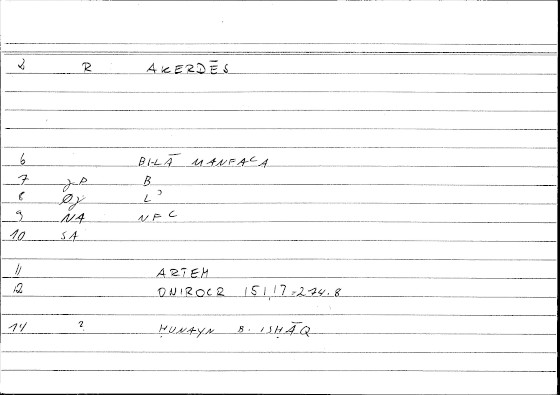 2 R AKERDĒS
6 BI-LĀ MANFAʿA
7 gP B
8 Øg Lʾ
9 NA NFʿ
10 SA
11 ARTEM
12 ONIROCR 151,17=274.8
14 ? ḤUNAYN B. ISḤĀQ